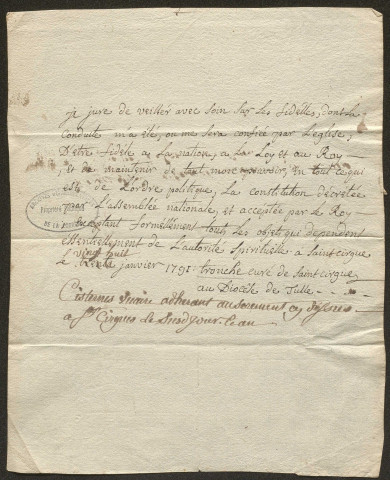 je jure de veiller avec soin sur les fidelles, dont la
conduite m'a été, ou me sera confiée par l'eglise,
D'être fidéle a la nation, a la Loy et au Roy
et de maintenir de tout mon pouvoir, en tout ce qui
est de l'ordre politique, la constitution décrétée
par l'assemblée nationale, et acceptée par le Roy
exceptant formellement tous les objets qui dependent
essentiellement de l'autorité spirituelle a saint cirque
vingt huit
le trente janvier 1791 bronche curé de saint cirque
au Diocèse de Tulle
vicaire adherant au serment cy dessus
a St Cirques de